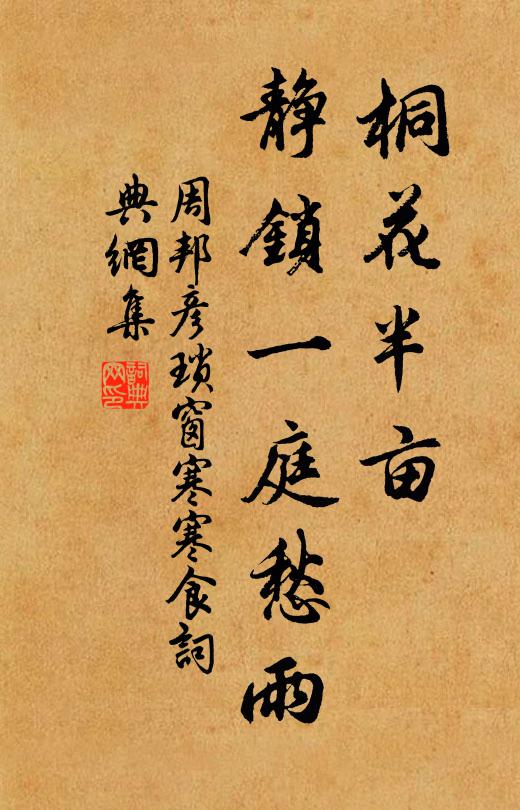 桐花半亩
静鎖一庭愁雨
周邦彦瑣窗寒寒食詞
典網集
詞典網印